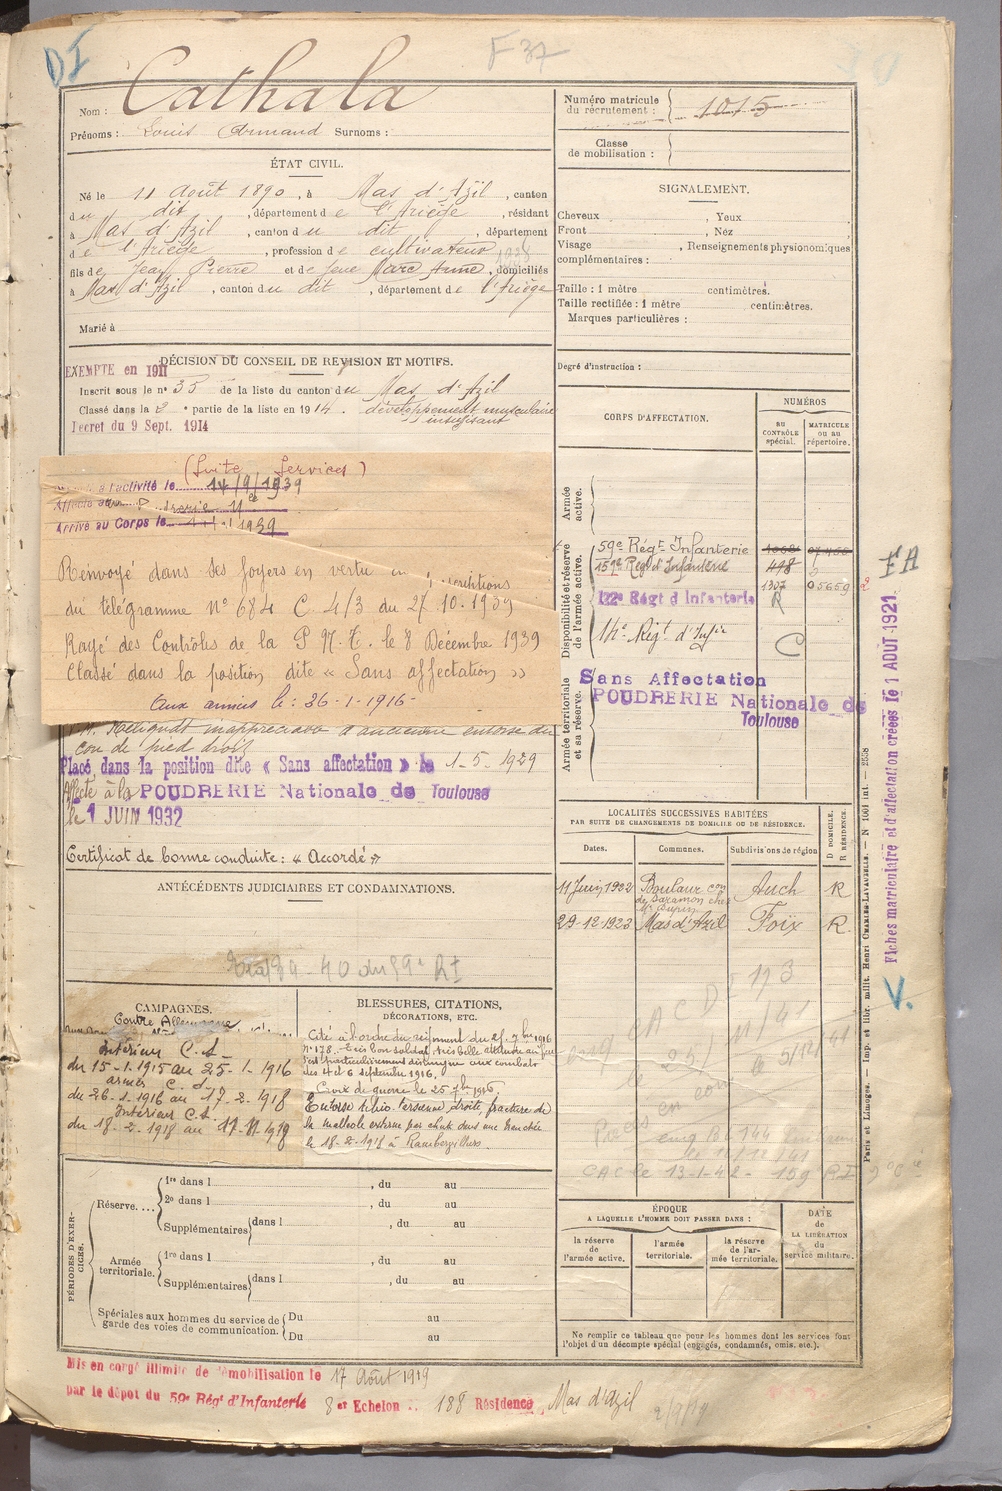 DI
F 37
Nom : Cathala
Prénoms : Louis Armand Surnoms :
Numéro matricule
du recrutement : 1015
Classe
de mobilisation :
ÉTAT CIVIL.
Né le 11 Août 1890, à Mas d'Azil, canton
du dit, département de l'Ariège, résidant
à Mas d'Azil, canton du dit, département
de l'Ariège, profession de cultivateur
fils de Jean Pierre et de feue Marc Anne, domiciliés
à Mas d'Azil, canton du dit, département de l'Ariège
Marié à
SIGNALEMENT.
Cheveux , Yeux
Front , Nez
Visage , Renseignements physionomiques
complémentaires :
Taille : 1 mètre centimètres.
Taille rectifiée : 1 mètre centimètres.
Marques particulières :
Degré d'instruction :
DÉCISION DU CONSEIL DE REVISION ET MOTIFS.
EXEMPTE en 1911
Inscrit sous le n° 35 de la liste du canton du Mas d'Azil
Classé dans la 2e partie de la liste en 1914. développement musculaire
insuffisant
Décret du 9 Sept. 1914
(Suite Services)
à l'activité le 14/9/1939
Affecté au
Arrivé au Corps le 1939
Renvoyé dans ses foyers en vertu
du télégramme N° 684 C 4/3 du 27.10.1939
Rayé des Contrôles de la P.N.T. le 8 Décembre 1939
Classé dans la position dite « Sans affectation »
Aux armées le : 26-1-1916
d'ancienne entorse du
cou de pied droit
Placé dans la position dite « Sans affectation » le 1-5-1929
Affecté à la POUDRERIE Nationale de Toulouse
le 1 JUIN 1932
Certificat de bonne conduite : « Accordé »
CORPS D'AFFECTATION.
NUMÉROS
AU CONTRÔLE spécial.
MATRICULE ou au répertoire.
Armée active.
Disponibilité et réserve de l'armée active.
59e Régt Infanterie
Régt d'Infanterie 448
1307 05659
122e Régt d'Infanterie R
14e Régt d'Infie C
Armée territoriale et sa réserve.
Sans Affectation
POUDRERIE Nationale de
Toulouse
EA
Fiches matriculaire et d'affectation créées le 1 AOUT 1921.
V.
Paris et Limoges. — Imp. et libr. milit. Henri CHARLES-LAVAUZELLE. — N° 1001 int. — 2558
ANTÉCÉDENTS JUDICIAIRES ET CONDAMNATIONS.
LOCALITÉS SUCCESSIVES HABITÉES
PAR SUITE DE CHANGEMENTS DE DOMICILE OU DE RÉSIDENCE.
Dates. Communes. Subdivisions de région D DOMICILE. R RÉSIDENCE
11 Juin 1922 Boulaur con Auch R
de Saramon chez
Mr Dupin
29-12-1923 Mas d'Azil Foix R
CAMPAGNES.
Contre Allemagne
Intérieur C.S.
du 15-1-1915 au 25-1-1916
armées C.D.
du 26-1-1916 au 17-2-1918
Intérieur C.S.
du 18-2-1918 au
BLESSURES, CITATIONS,
DÉCORATIONS, ETC.
Cité à l'ordre du régiment du 25 7bre 1916
N° 178. Très bon soldat, très belle attitude au feu
s'est particulièrement distingué aux combats
des 4 et 6 septembre 1916.
Croix de guerre le 25 7bre 1916
Entorse tibio tarsienne droite, fracture de
la malléole externe par chute dans une tranchée
le 18-2-1918 à Rambervillers.
11/41
CAC le 13-1-42- 159 RI
PÉRIODES D'EXERCICES.
Réserve....
1re dans l , du au
2e dans l , du au
Supplémentaires dans l , du au
Armée territoriale.
1re dans l , du au
Supplémentaires dans l , du au
Spéciales aux hommes du service de
garde des voies de communication.
Du au
Du au
ÉPOQUE
A LAQUELLE L'HOMME DOIT PASSER DANS :
la réserve de l'armée active.
l'armée territoriale.
la réserve de l'armée territoriale.
DATE de LA LIBÉRATION du service militaire.
Ne remplir ce tableau que pour les hommes dont les services font
l'objet d'un décompte spécial (engagés, condamnés, omis, etc.).
Mis en congé illimité de démobilisation le 17 Août 1919
par le dépôt du 59e Régt d'Infanterie 8e Echelon 188 Résidence Mas d'Azil